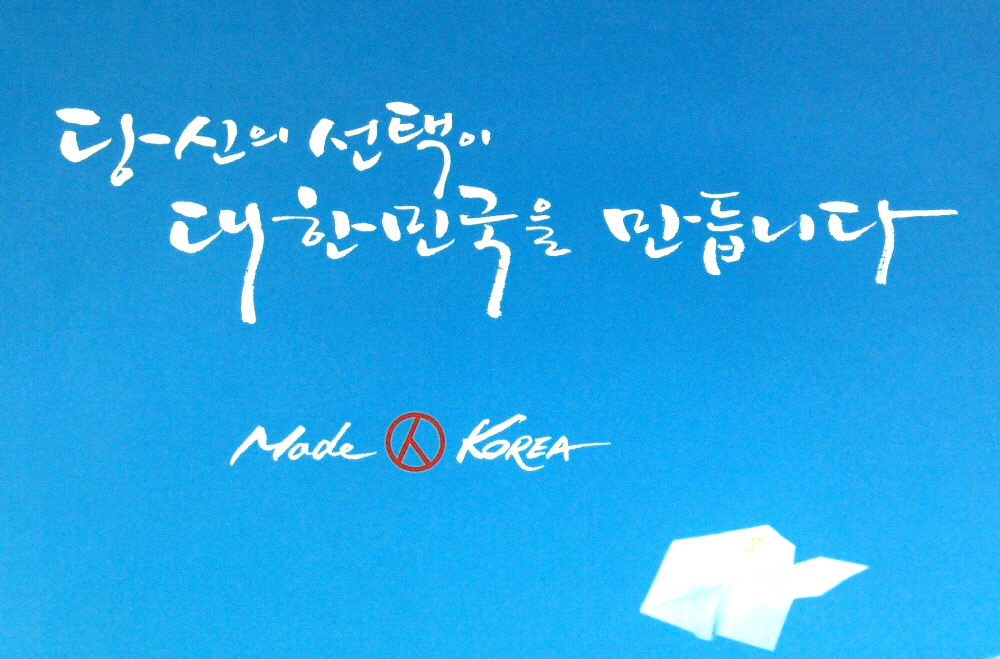 당신의 선택이
대한민국을 만듭니다
Made KOREA